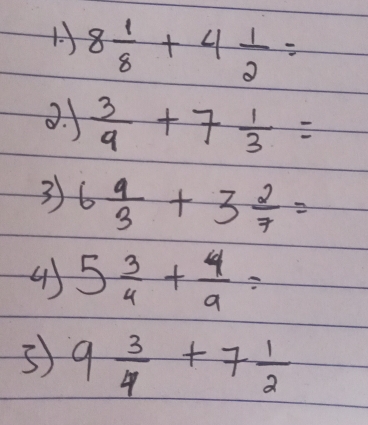 1.) 8 1/8 + 4 1/2 =
2.) 3/9 + 7 1/3 =
3) 6 9/3 + 3 2/7 =
4) 5 3/4 + 4/9 =
5) 9 3/4 + 7 1/2